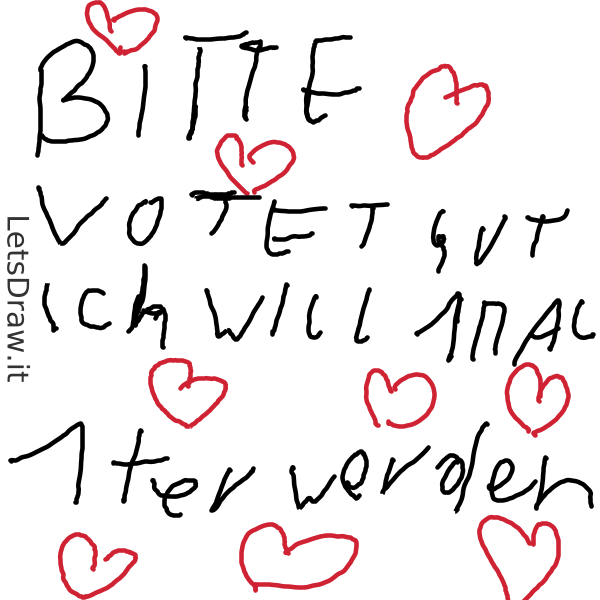 BITTE
VOTET GUT
ich WILL 1MAL
1ter werden
LetsDraw.it